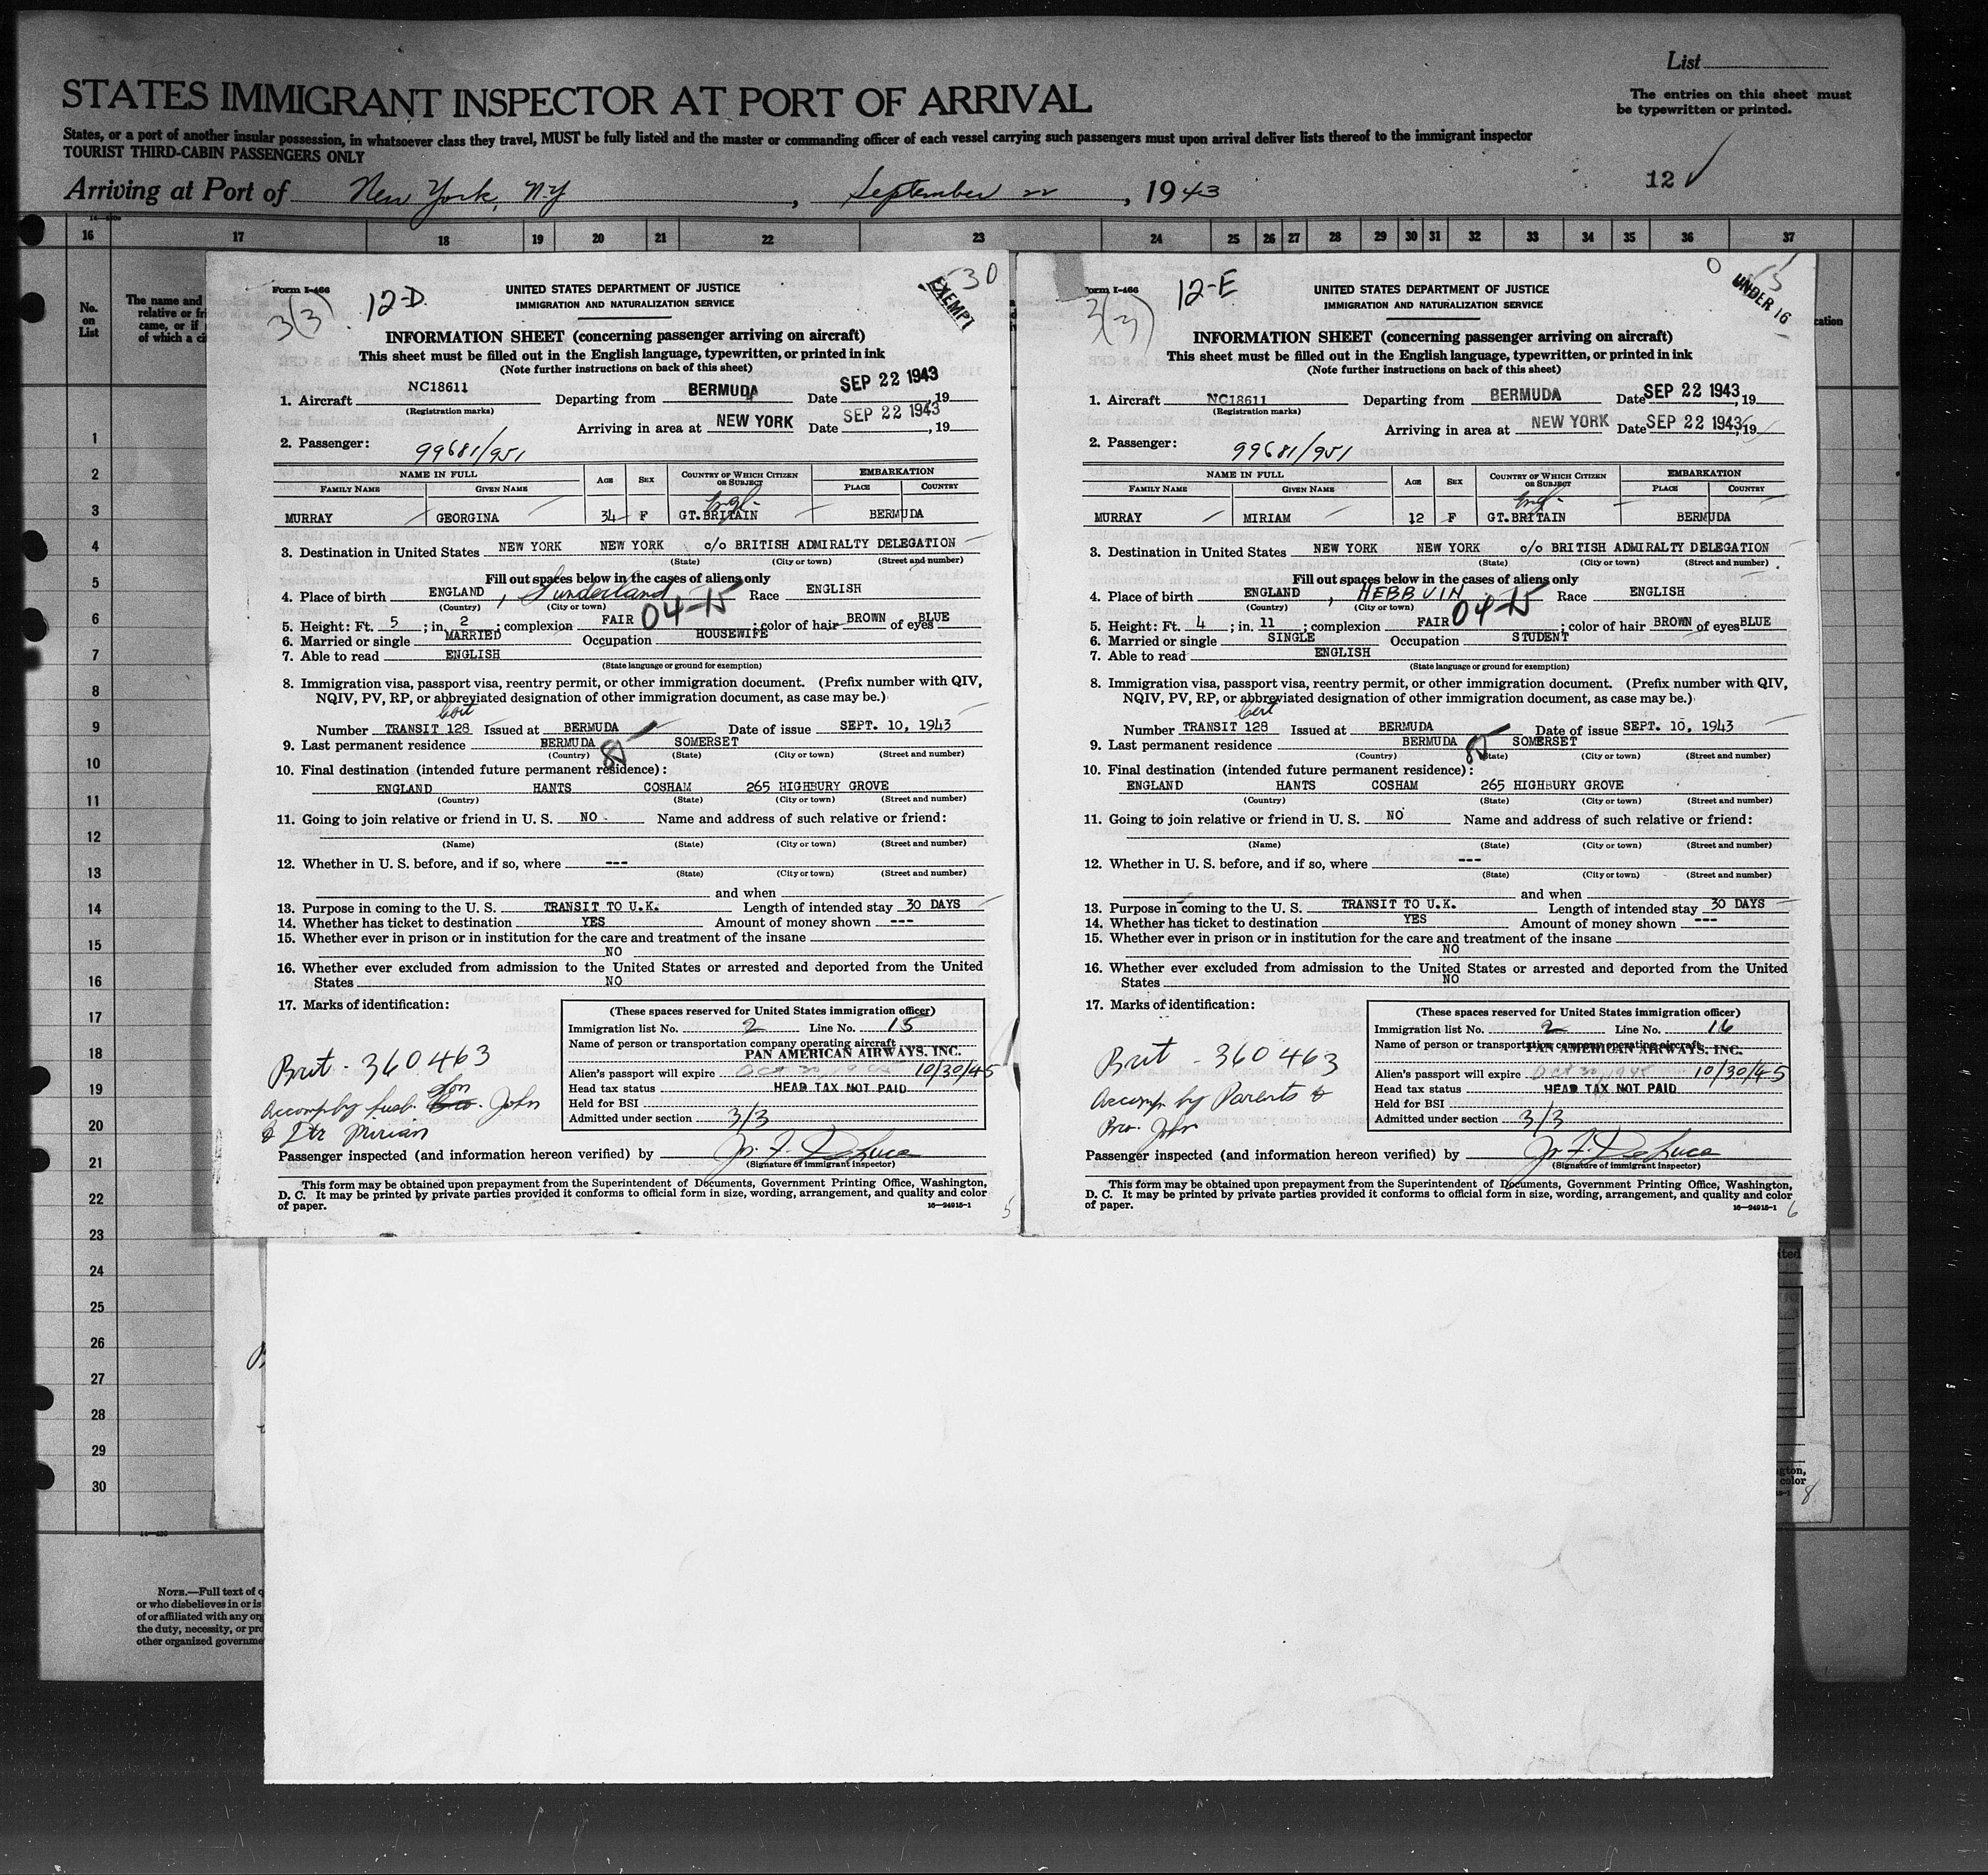 List
STATES IMMIGRANT INSPECTOR AT PORT OF ARRIVAL
The entries on this sheet must
be typewritten or printed.
States, or a port of another insular possession, in whatsoever class they travel, MUST be fully listed and the master or commanding officer of each vessel carrying such passengers must upon arrival deliver lists thereof to the immigrant inspector
TOURIST THIRD-CABIN PASSENGERS ONLY
Arriving at Port of New York, N.Y , September 22 , 1943
12 ✓
16 17 18 19 20 21 22 23 24 25 26 27 28 29 30 31 32 33 34 35 36 37
No.
on
List
The name and
relative or fri
came, or if
of which a ci
1
2
3
4
5
6
7
8
9
10
11
12
13
14
15
16
17
18
19
20
21
22
23
24
25
26
27
28
29
30
NOTE.—Full text of q
or who disbelieves in or is
of or affiliated with any org
the duty, necessity, or pro
other organized governme
Form I-466
3(3) 12-D.
30
EXEMPT
UNITED STATES DEPARTMENT OF JUSTICE
IMMIGRATION AND NATURALIZATION SERVICE
INFORMATION SHEET (concerning passenger arriving on aircraft)
This sheet must be filled out in the English language, typewritten, or printed in ink
(Note further instructions on back of this sheet)
1. Aircraft NC18611 Departing from BERMUDA Date SEP 22 1943, 19
(Registration marks)
Arriving in area at NEW YORK Date SEP 22 1943, 19
2. Passenger: 99681/951
NAME IN FULL AGE SEX COUNTRY OF WHICH CITIZEN OR SUBJECT EMBARKATION
FAMILY NAME GIVEN NAME PLACE COUNTRY
Engl.
MURRAY GEORGINA 34 F GT.BRITAIN BERMUDA
3. Destination in United States NEW YORK NEW YORK c/o BRITISH ADMIRALTY DELEGATION
(State) (City or town) (Street and number)
Fill out spaces below in the cases of aliens only
4. Place of birth ENGLAND, Sunderland Race ENGLISH
(Country) (City or town)
04-15
5. Height: Ft. 5 ; in 2 ; complexion FAIR ; color of hair BROWN of eyes BLUE
6. Married or single MARRIED Occupation HOUSEWIFE
7. Able to read ENGLISH
(State language or ground for exemption)
8. Immigration visa, passport visa, reentry permit, or other immigration document. (Prefix number with QIV,
NQIV, PV, RP, or abbreviated designation of other immigration document, as case may be.)
Cert
Number TRANSIT 128 Issued at BERMUDA Date of issue SEPT. 10, 1943
9. Last permanent residence BERMUDA SOMERSET
(Country) (State) (City or town) (Street and number)
10. Final destination (intended future permanent residence):
ENGLAND HANTS COSHAM 265 HIGHBURY GROVE
(Country) (State) (City or town) (Street and number)
11. Going to join relative or friend in U. S. NO. Name and address of such relative or friend:
(Name) (State) (City or town) (Street and number)
12. Whether in U. S. before, and if so, where ---
(State) (City or town) (Street and number)
and when
13. Purpose in coming to the U. S. TRANSIT TO U.K. Length of intended stay 30 DAYS
14. Whether has ticket to destination YES Amount of money shown ---
15. Whether ever in prison or in institution for the care and treatment of the insane
NO
16. Whether ever excluded from admission to the United States or arrested and deported from the United
States NO
17. Marks of identification:
(These spaces reserved for United States immigration officer)
Immigration list No. 2 Line No. 15
Name of person or transportation company operating aircraft
PAN AMERICAN AIRWAYS, INC.
Alien's passport will expire 10/30/45
Head tax status HEAD TAX NOT PAID
Held for BSI
Admitted under section 3/3
Brit - 360463
Accomp by husb. Son John
& Dtr Miriam
Passenger inspected (and information hereon verified) by Jr. F. DeLuca
(Signature of immigrant inspector)
This form may be obtained upon prepayment from the Superintendent of Documents, Government Printing Office, Washington,
D. C. It may be printed by private parties provided it conforms to official form in size, wording, arrangement, and quality and color
of paper.
16—24915-1
5
Form I-466
3(3) 12-E
0
UNDER 16
UNITED STATES DEPARTMENT OF JUSTICE
IMMIGRATION AND NATURALIZATION SERVICE
INFORMATION SHEET (concerning passenger arriving on aircraft)
This sheet must be filled out in the English language, typewritten, or printed in ink
(Note further instructions on back of this sheet)
1. Aircraft NC18611 Departing from BERMUDA Date SEP 22 1943, 19
(Registration marks)
Arriving in area at NEW YORK Date SEP 22 1943, 19
2. Passenger: 99681/951
NAME IN FULL AGE SEX COUNTRY OF WHICH CITIZEN OR SUBJECT EMBARKATION
FAMILY NAME GIVEN NAME PLACE COUNTRY
Engl.
MURRAY MIRIAM 12 F GT.BRITAIN BERMUDA
3. Destination in United States NEW YORK NEW YORK c/o BRITISH ADMIRALTY DELEGATION
(State) (City or town) (Street and number)
Fill out spaces below in the cases of aliens only
4. Place of birth ENGLAND, HEBBVIN Race ENGLISH
(Country) (City or town)
04-15
5. Height: Ft. 4 ; in. 11 ; complexion FAIR ; color of hair BROWN of eyes BLUE
6. Married or single SINGLE Occupation STUDENT
7. Able to read ENGLISH
(State language or ground for exemption)
8. Immigration visa, passport visa, reentry permit, or other immigration document. (Prefix number with QIV,
NQIV, PV, RP, or abbreviated designation of other immigration document, as case may be.)
Cert
Number TRANSIT 128 Issued at BERMUDA Date of issue SEPT. 10, 1943
9. Last permanent residence BERMUDA SOMERSET
(Country) (State) (City or town) (Street and number)
10. Final destination (intended future permanent residence):
ENGLAND HANTS COSHAM 265 HIGHBURY GROVE
(Country) (State) (City or town) (Street and number)
11. Going to join relative or friend in U. S. NO Name and address of such relative or friend:
(Name) (State) (City or town) (Street and number)
12. Whether in U. S. before, and if so, where ---
(State) (City or town) (Street and number)
and when
13. Purpose in coming to the U. S. TRANSIT TO U.K. Length of intended stay 30 DAYS
14. Whether has ticket to destination YES Amount of money shown ---
15. Whether ever in prison or in institution for the care and treatment of the insane
NO
16. Whether ever excluded from admission to the United States or arrested and deported from the United
States NO
17. Marks of identification:
(These spaces reserved for United States immigration officer)
Immigration list No. 2 Line No. 16
Name of person or transportation company operating aircraft
PAN AMERICAN AIRWAYS, INC.
Alien's passport will expire 10/30/45
Head tax status HEAD TAX NOT PAID
Held for BSI
Admitted under section 3/3
Brit - 360463
Accomp. by Parents &
Bro. John
Passenger inspected (and information hereon verified) by Jr. F. DeLuca
(Signature of immigrant inspector)
This form may be obtained upon prepayment from the Superintendent of Documents, Government Printing Office, Washington,
D. C. It may be printed by private parties provided it conforms to official form in size, wording, arrangement, and quality and color
of paper.
16—24915-1
6
cation
ited
gton,
color
8